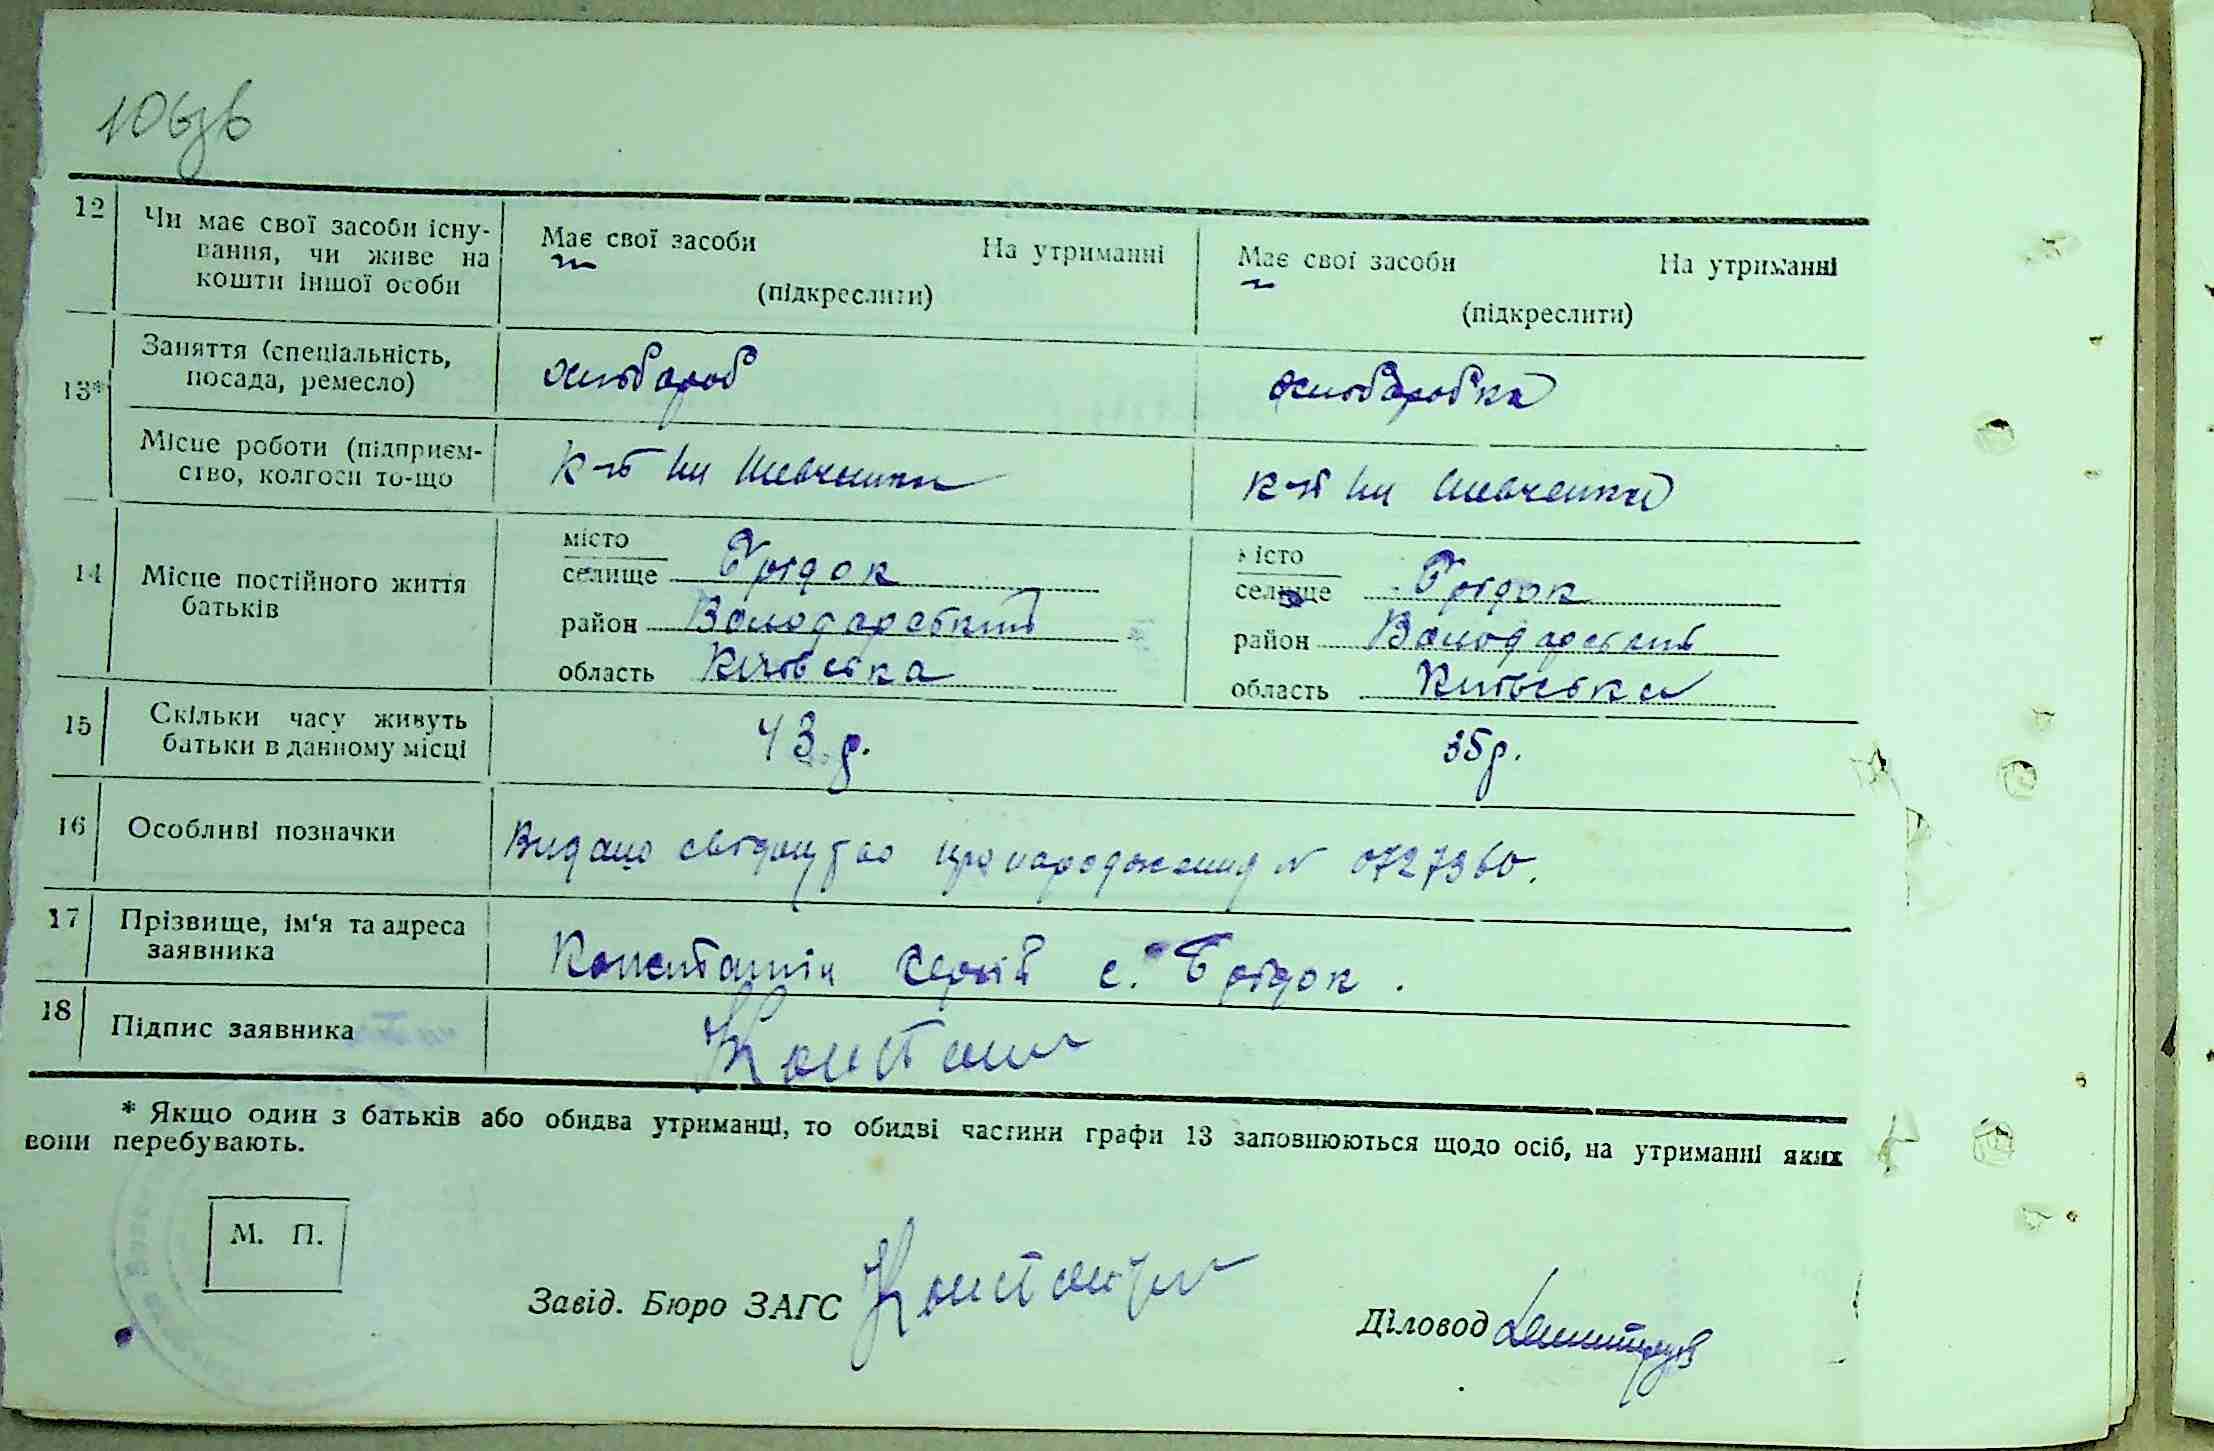 106зв
12 Чи має свої засоби існу- Має свої засоби На утриманні Має свої засоби На утриманні
вання, чи живе на
кошти іншої особи (підкреслити) (підкреслити)
13* Заняття (спеціальність, хлібороб хліборобка
посада, ремесло)
Місце роботи (підприєм- к-п ім Шевченка к-п ім Шевченка
ство, колгосп то-що
14 Місце постійного життя місто місто
батьків селище Грідок селище Грідок
район Володарський район Володарський
область Київська область Київська
15 Скільки часу живуть 43 р. 35 р.
батьки в данному місці
16 Особливі позначки Видано свідоцтво про народження № 0727360.
17 Прізвище, ім'я та адреса Сергій с.
заявника
18 Підпис заявника
* Якщо один з батьків або обидва утриманці, то обидві частини графи 13 заповнюються щодо осіб, на утриманні яких
вони перебувають.
М. П.
Завід. Бюро ЗАГС Діловод